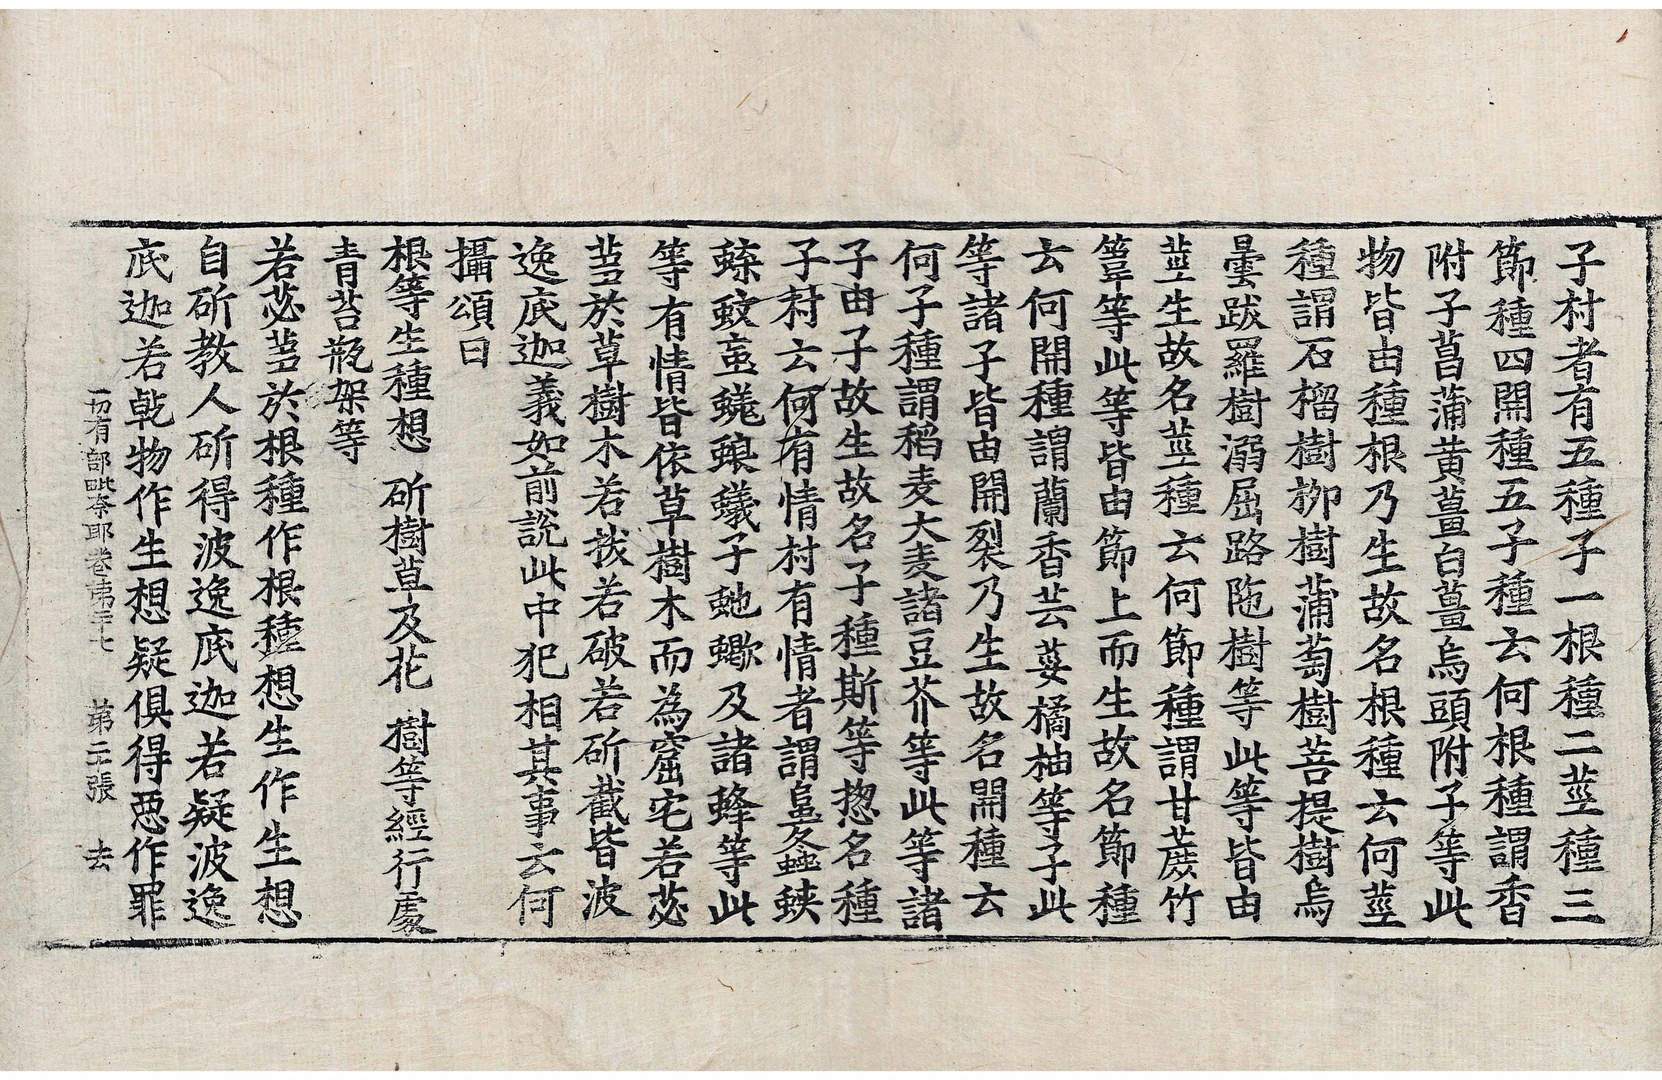 子村者有五種子一根種二莖種三
節種四開種五子種云何根種謂香
附子菖蒲黃薑白薑烏頭附子等此
物皆由種根乃生故名根種云何莖
種謂石榴樹柳樹蒲萄樹菩提樹烏
曇跋羅樹溺屈路陁樹等此等皆由
莖生故名莖種云何節種謂甘蔗竹
葦等此等皆由節上而生故名節種
云何開種謂蘭香芸荽橘柚等子此
等諸子皆由開裂乃生故名開種云
何子種謂稻麦大麦諸豆芥等此等諸
子由子故生故名子種斯等揔名種
子村云何有情村有情者謂䖝螽蛺
蝶蚊蝱蜣蜋蟻子虵蠍及諸蜂等此
等有情皆依草樹木而為窟宅若苾
芻於草樹木若拔若破若斫截皆波
逸底迦義如前說此中犯相其事云何
攝頌曰
根等生種想 斫樹草及花 樹等經行處
青苔瓶架等
若苾芻於根種作根種想生作生想
自斫教人斫得波逸底迦若疑波逸
底迦若乾物作生想疑俱得惡作罪
一切有部毗奈耶卷第二十七 第二張 去